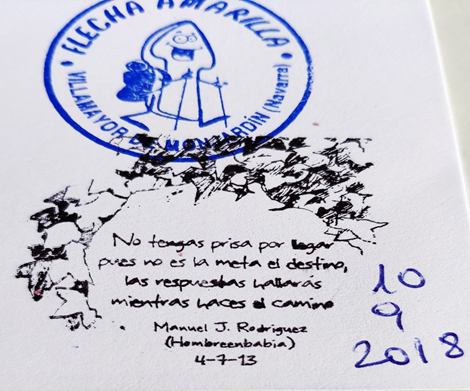 FLECHA AMARILLA
VILLAMAYOR DE MONJARDÍN (Navarra)
No tengas prisa por llegar
pues no es la meta el destino,
las respuestas hallarás
mientras haces el camino
Manuel J. Rodriguez
(Hombreenbabia)
4-7-13
10
9
2018